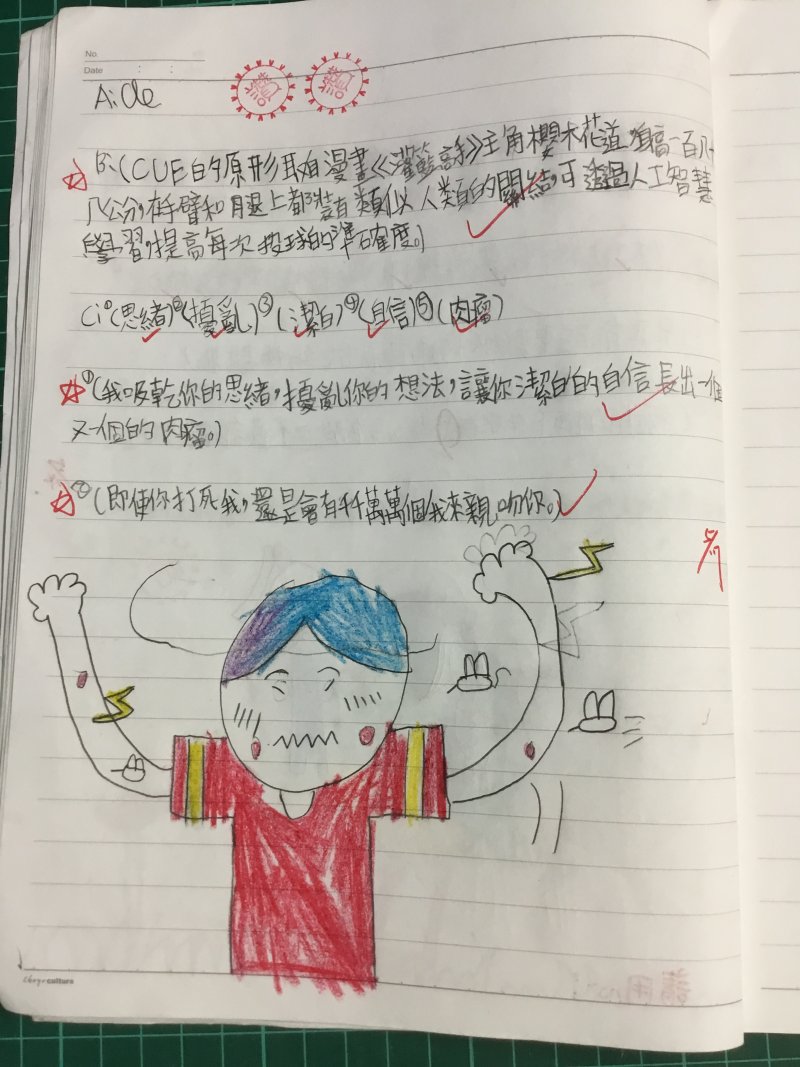 No.
Date : :
B、(CUE的原形取自漫畫《灌籃高手》主角櫻木花道,身高一百八十
八公分,在手臂和腿上都裝有類似人類的關結,可透過人工智慧
學習,提高每次投球的準確度。)
C、①(思緒)②(擾亂)③(潔白)④(自信)⑤(肉瘤)
☆①(我吸乾你的思緒,擾亂你的想法,讓你潔白的自信長出一個
又一個的肉瘤。)
☆②(即使你打死我,還是會有千千萬萬個我來親吻你。)